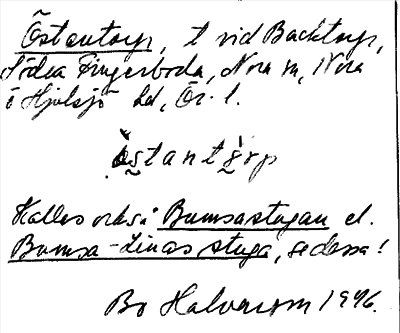 Östantorp, t vid Backtorp,
Södra Fingerboda, Nora sn, Nora
o Hjulsjö hd, Ör. l.
östantörp
Kallas också Bumsastugan el.
Bumsa-Linas stuga, se dessa!
Bo Halvarsson 1946.